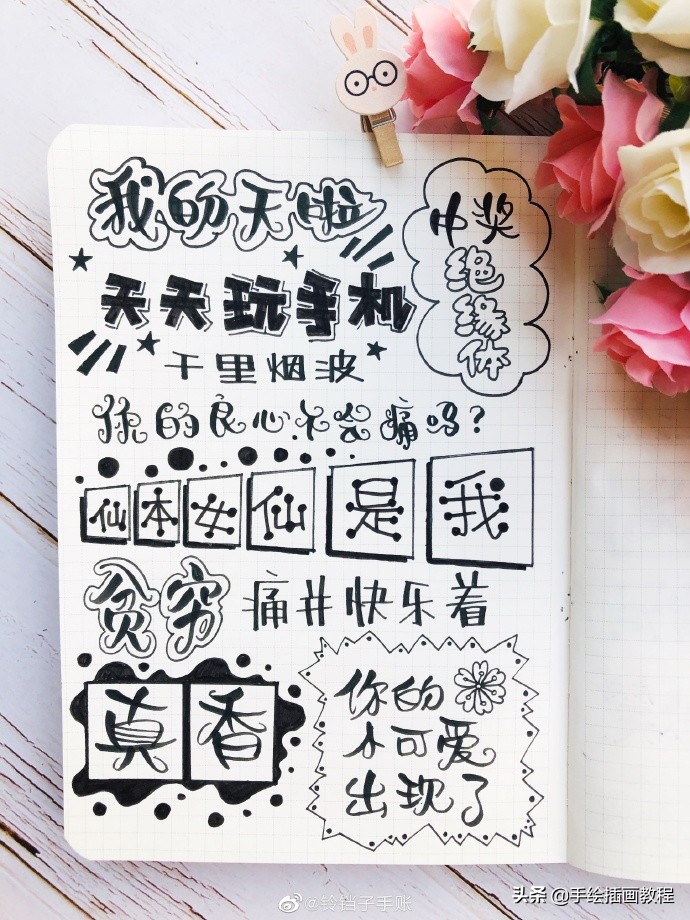 我的天啦
中奖
绝
缘
体
天天玩手机
千里烟波
你的良心不会痛吗？
仙本女仙是我
贫穷 痛并快乐着
真香
你的
小可爱
出现了
@铃铛子手账
头条@手绘插画教程